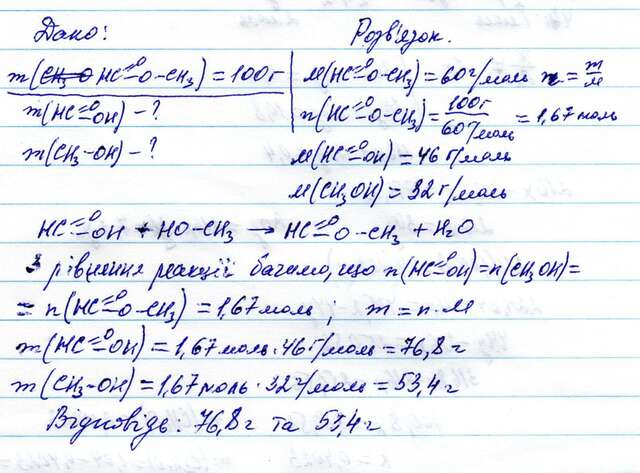 Дано: Розв'язок.
m(HC=O O-CH3) = 100г M(HC=O O-CH3) = 60г/моль n = m/M
m(HC=O OH) - ? n(HC=O O-CH3) = 100г / 60г/моль = 1,67 моль
m(CH3-OH) - ? M(HC=O OH) = 46 г/моль
M(CH3OH) = 32 г/моль
HC=O OH + HO-CH3 → HC=O O-CH3 + H2O
З рівняння реакції бачимо, що n(HC=O OH) = n(CH3OH) =
= n(HC=O O-CH3) = 1,67 моль; m = n·M
m(HC=O OH) = 1,67 моль · 46 г/моль = 76,8 г
m(CH3-OH) = 1,67 моль · 32 г/моль = 53,4 г
Відповідь: 76,8 г та 53,4 г